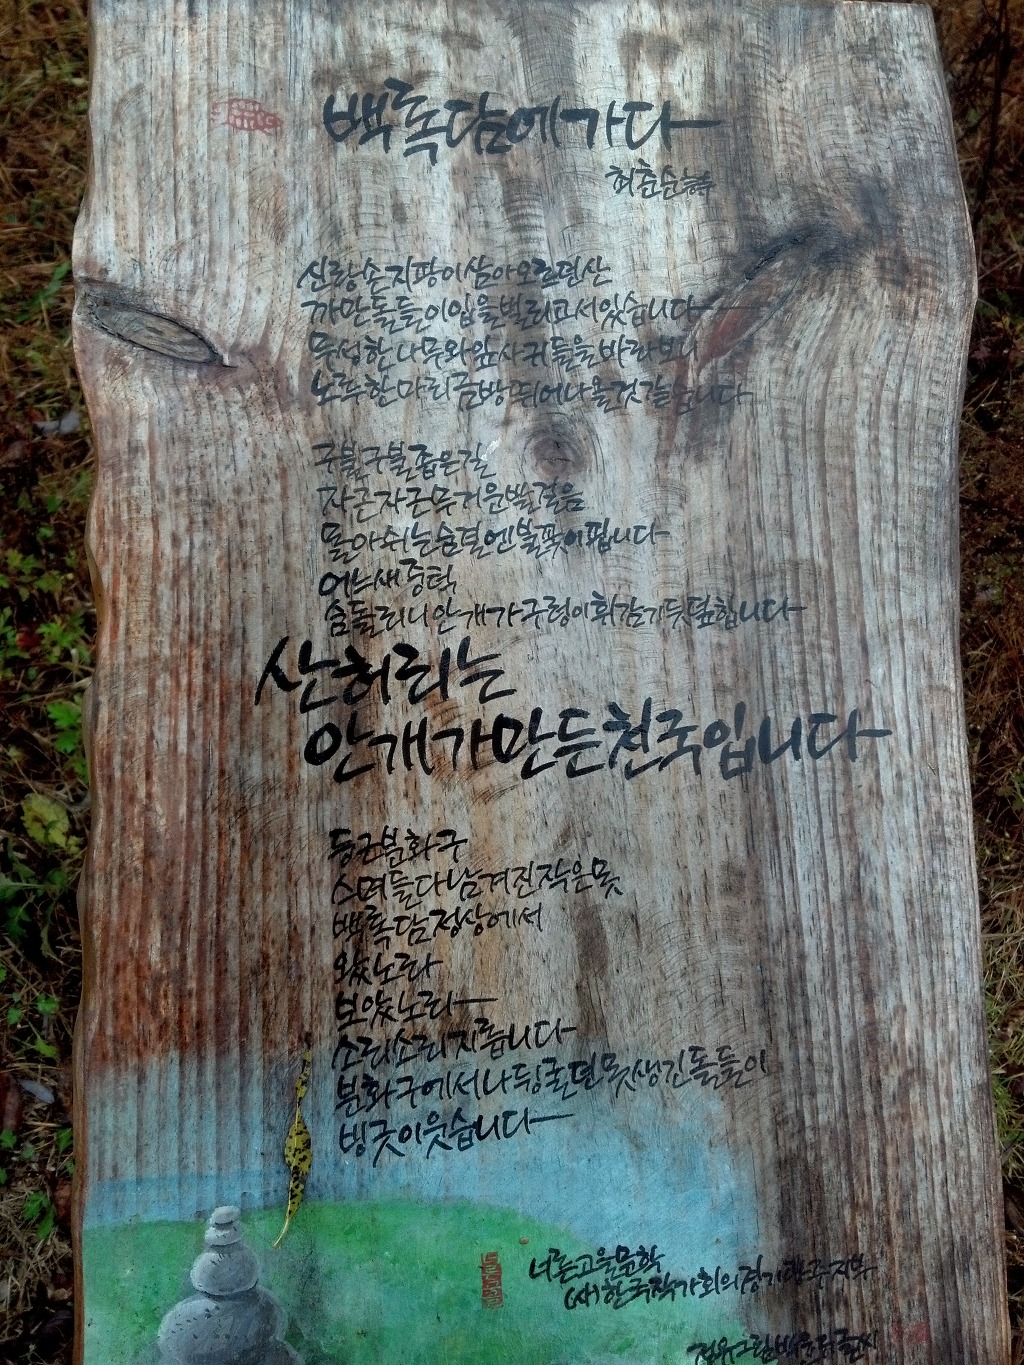 백록담에 가다
최춘순
신랑 손 지팡이 삼아 오르던 산
까만 돌들이 입을 벌리고 서 있습니다
무성한 나무와 잎사귀들을 바라보니
노루 한 마리 금방 뛰어나올 것 같습니다
구불구불 좁은 길
자근자근 무거운 발걸음
몰아쉬는 숨결엔 불꽃이 핍니다
어느새 중턱
숨 돌리니 안개가 구렁이 휘감기듯 덮칩니다
산허리는
안개가 만든 천국입니다
둥근 분화구
스며들다 남겨진 작은 못
백록담 정상에서
왔노라
보았노라
소리소리 지릅니다
분화구에서 나뒹굴던 못생긴 돌들이
빙긋이 웃습니다
너른고을문학
(사)한국작가회의 경기광주지부